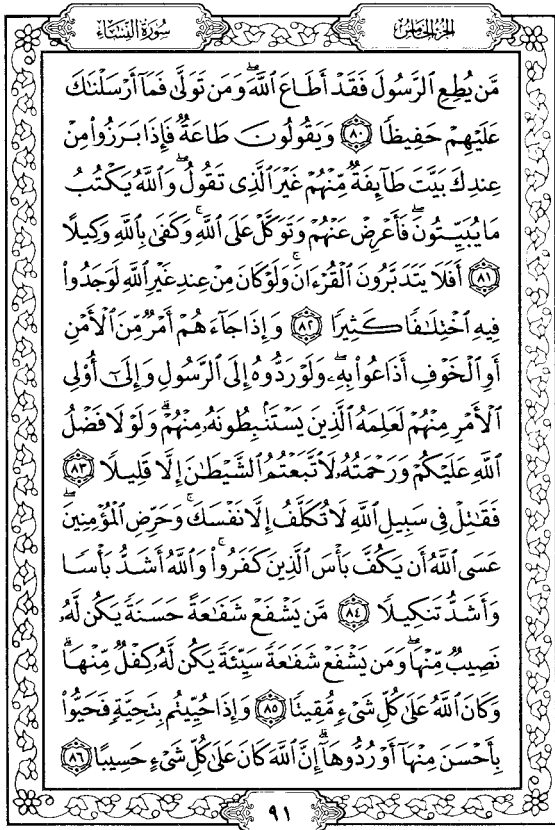 سُورَةُ النِّسَاءِ
الجُزْءُ الخَامِسُ
مَّن يُطِعِ ٱلرَّسُولَ فَقَدْ أَطَاعَ ٱللَّهَۖ وَمَن تَوَلَّىٰ فَمَآ أَرْسَلْنَٰكَ
عَلَيْهِمْ حَفِيظًا ﴿٨٠﴾ وَيَقُولُونَ طَاعَةٌ فَإِذَا بَرَزُوا۟ مِنْ
عِندِكَ بَيَّتَ طَآئِفَةٌ مِّنْهُمْ غَيْرَ ٱلَّذِى تَقُولُۖ وَٱللَّهُ يَكْتُبُ
مَا يُبَيِّتُونَۖ فَأَعْرِضْ عَنْهُمْ وَتَوَكَّلْ عَلَى ٱللَّهِۚ وَكَفَىٰ بِٱللَّهِ وَكِيلًا
﴿٨١﴾ أَفَلَا يَتَدَبَّرُونَ ٱلْقُرْءَانَۚ وَلَوْ كَانَ مِنْ عِندِ غَيْرِ ٱللَّهِ لَوَجَدُوا۟
فِيهِ ٱخْتِلَٰفًا كَثِيرًا ﴿٨٢﴾ وَإِذَا جَآءَهُمْ أَمْرٌ مِّنَ ٱلْأَمْنِ
أَوِ ٱلْخَوْفِ أَذَاعُوا۟ بِهِۦۖ وَلَوْ رَدُّوهُ إِلَى ٱلرَّسُولِ وَإِلَىٰٓ أُو۟لِى
ٱلْأَمْرِ مِنْهُمْ لَعَلِمَهُ ٱلَّذِينَ يَسْتَنۢبِطُونَهُۥ مِنْهُمْۗ وَلَوْلَا فَضْلُ
ٱللَّهِ عَلَيْكُمْ وَرَحْمَتُهُۥ لَٱتَّبَعْتُمُ ٱلشَّيْطَٰنَ إِلَّا قَلِيلًا ﴿٨٣﴾
فَقَٰتِلْ فِى سَبِيلِ ٱللَّهِ لَا تُكَلَّفُ إِلَّا نَفْسَكَۚ وَحَرِّضِ ٱلْمُؤْمِنِينَۖ
عَسَى ٱللَّهُ أَن يَكُفَّ بَأْسَ ٱلَّذِينَ كَفَرُوا۟ۚ وَٱللَّهُ أَشَدُّ بَأْسًا
وَأَشَدُّ تَنكِيلًا ﴿٨٤﴾ مَّن يَشْفَعْ شَفَٰعَةً حَسَنَةً يَكُن لَّهُۥ
نَصِيبٌ مِّنْهَاۖ وَمَن يَشْفَعْ شَفَٰعَةً سَيِّئَةً يَكُن لَّهُۥ كِفْلٌ مِّنْهَاۗ
وَكَانَ ٱللَّهُ عَلَىٰ كُلِّ شَىْءٍ مُّقِيتًا ﴿٨٥﴾ وَإِذَا حُيِّيتُم بِتَحِيَّةٍ فَحَيُّوا۟
بِأَحْسَنَ مِنْهَآ أَوْ رُدُّوهَآۗ إِنَّ ٱللَّهَ كَانَ عَلَىٰ كُلِّ شَىْءٍ حَسِيبًا ﴿٨٦﴾
٩١